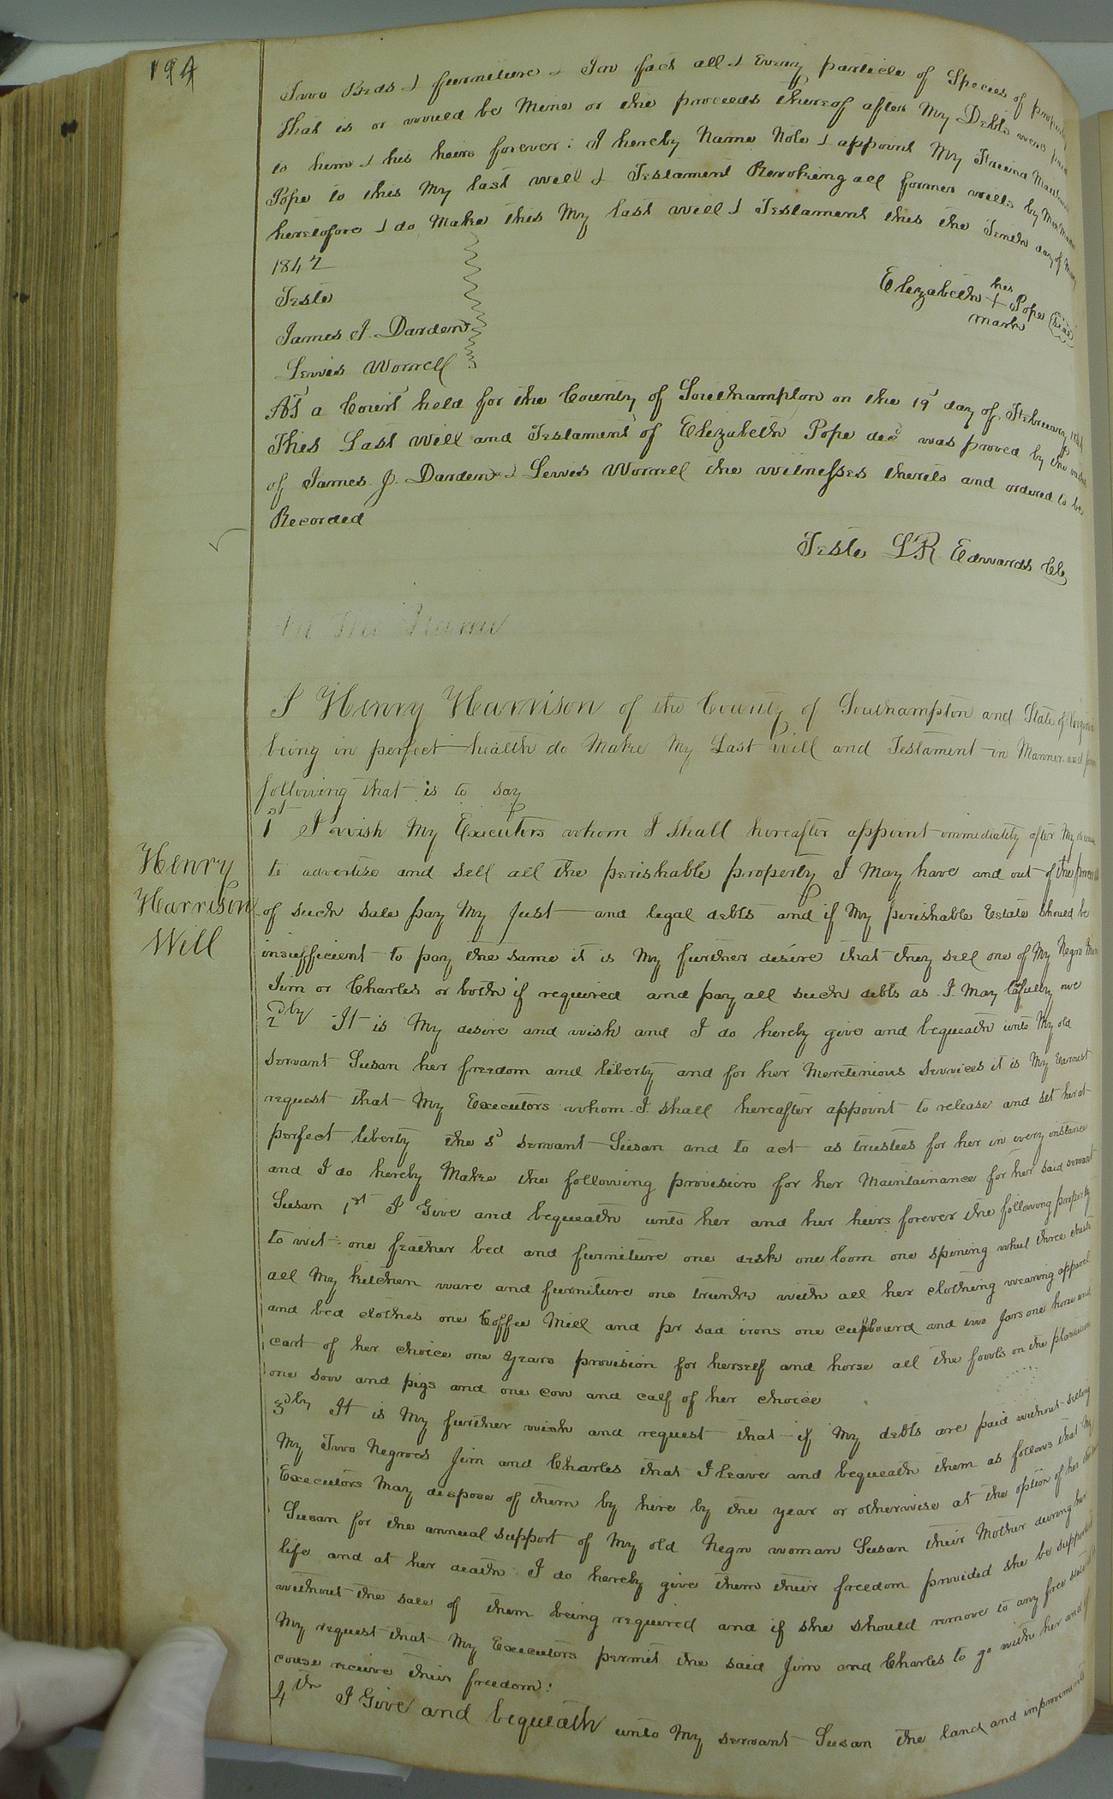 194
Two Beds & furniture & In fact all & Every particle of Species of property
that is or would be Mine or the proceeds thereof after My Debts were paid
to him & his heirs forever: I hereby Name Note & appoint My Friend
Pope to this My last will & Testament Revoking all former wills by Me Made
heretofore & do Make this My last will & Testament this the Tenth day of
1842
Teste
James J. Darden
Lewis Worrell
Elizabeth her + mark Pope (Seal)
At a Court held for the County of Southampton on the 19th day of February
This Last Will and Testament of Elizabeth Pope decd was proved by the oaths
of James J. Darden & Lewis Worrell the witnesses thereto and ordered to be
Recorded
Teste L R Edwards Cl
In the Name
I Henry Harrison of the County of Southampton and State of Virginia
being in perfect health do Make My Last Will and Testament in Manner and form
following that is to say
1st I wish My Executors whom I shall hereafter appoint immediately after My
to advertise and sell all the perishable property I May have and out of the proceeds
Henry
Harrison
Will
of such sale pay My Just and legal debts and if My perishable Estate should be
insufficient to pay the same it is My further desire that they sell one of My Negro Men
Jim or Charles or both if required and pay all such debts as I May lafully owe
2dly It is My desire and wish and I do hereby give and bequeath unto My old
servant Susan her freedom and liberty and for her Meretinious Services it is My Earnest
request that My Executors whom I shall hereafter appoint to release and set her at
perfect liberty the sd servant Susan and to act as trustees for her in every instance
and I do hereby Make the following provision for her Maintainance for her said servant
Susan 1st I Give and bequeath unto her and her heirs forever the following property
to wit: one feather bed and furniture one desk one loom one spining wheel three chests
all My kitchen ware and furniture one trunk with all her clothing wearing apparel
and bed clothes one Coffee Mill and pr sad irons one cupboard and two Jars one horse and
cart of her choice one years provision for herself and horse all the fowls on the plantation
one sow and pigs and one cow and calf of her choice
3dly It is My further wish and request that if My debts are paid without selling
My Two Negroes Jim and Charles that I leave and bequeath them as follows that My
Executors May dispose of them by hire by the year or otherwise at the option of her the said
Susan for the annual support of My old Negro woman Susan their Mother during her
life and at her death I do hereby give them their freedom provided she be supported
without the sale of them being required and if she should remove to any free state
My request that My Executors permit the said Jim and Charles to go with her and of
couse receive their freedom:
4th I Give and bequeath unto My servant Susan the land and improvements